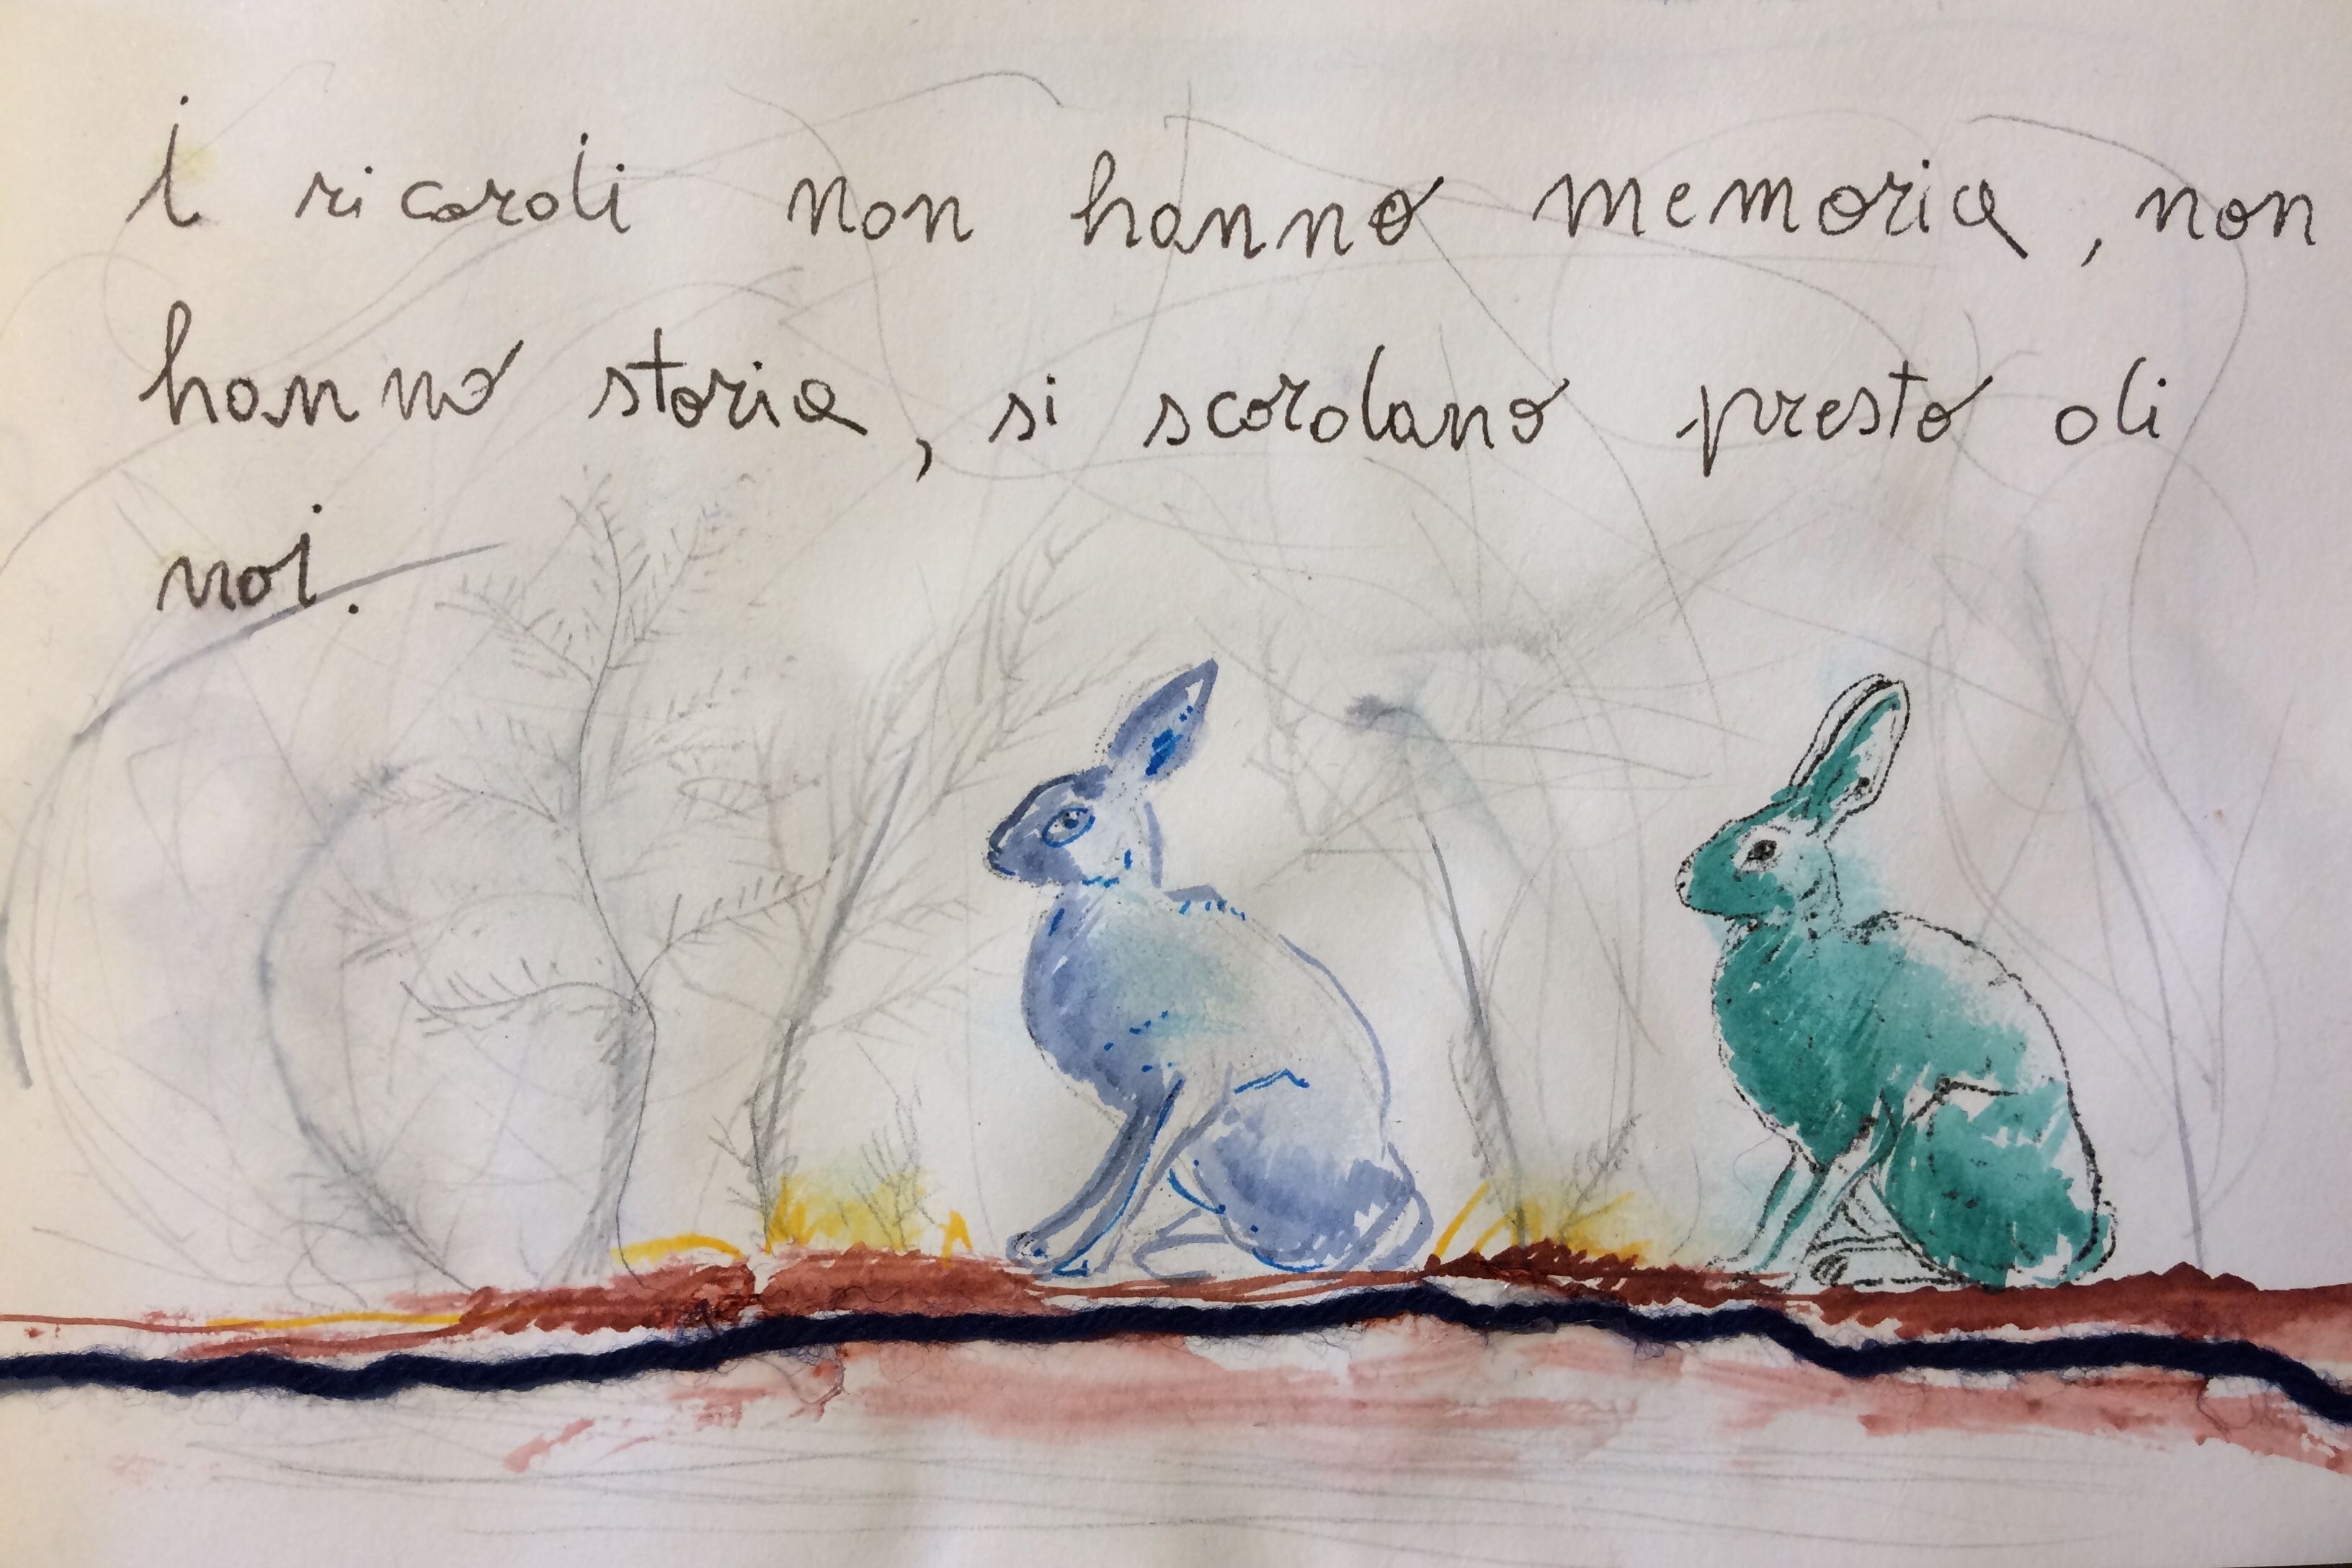 I ricordi non hanno memoria, non
hanno storia, si scordano presto di
noi.